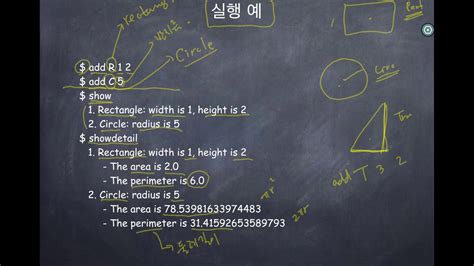 실행 예
rectang
Circle
$ add R 1 2
$ add C 5
$ show
1. Rectangle: width is 1, height is 2
2. Circle: radius is 5
$ showdetail
1. Rectangle: width is 1, height is 2
- The area is 2.0
- The perimeter is 6.0
2. Circle: radius is 5
- The area is 78.53981633974483
- The perimeter is 31.41592653589793
πr²
2πr
add T 3 2